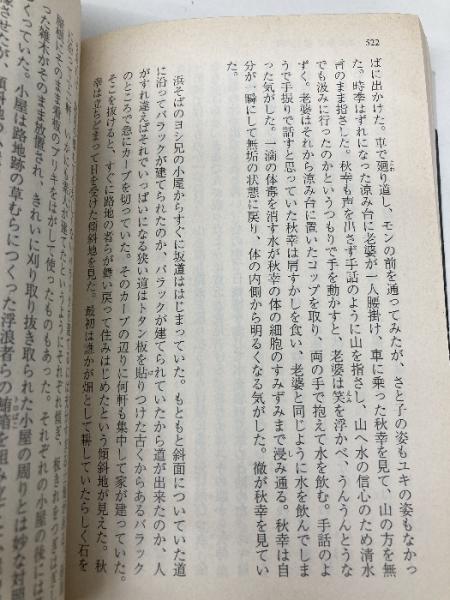 522
ばに出かけた。車で廻り道し、モンの前を通ってみたが、さと子の姿もユキの姿もなかっ
た。時季はずれになった涼み台に老婆が一人腰掛け、車に乗った秋幸を見て、山の方を無
言のまま指さした。秋幸も声を出さず手話のように山を指さし、山へ水の信心のため清水
でも汲みに行ったのかというつもりで手を動かすと、老婆は笑を浮かべ、うんうんとうな
ずく。老婆はそれから涼み台に置いたコップを取り、両の手で抱えて水を飲む。手話のよ
うで手振りで話すと思っていた秋幸は肩すかしを食い、老婆と同じように水を飲んでしま
った気がした。一滴の体毒を消す水が秋幸の体の細胞のすみずみまで浸み通る。秋幸は自
分が一瞬にして無垢の状態に戻り、体の内側から明るくなる気がした。徹が秋幸を見てい
た。
浜そばのヨシ兄の小屋からすぐに坂道ははじまっていた。もともと斜面についていた道
に沿ってバラックが建てられたのか、バラックが建てられていたから道が出来たのか、人
がすれ違えばそれでいっぱいになる狭い道はトタン板を貼りつけた古くからあるバラック
のところで急にカーブを切っていた。そのカーブの辺りに何軒も集中して家が建っていた。
そこを抜けると、すぐに路地の者らが舞い戻って住みはじめたという傾斜地が見えた。秋
幸は立ちどまって日を受けた傾斜地を見た。最初は誰かが畑として耕していたらしく石を
屋根にそのまま看板のブリキをはがして使ったものもあった。それぞれの小屋の後には
った雑木がそのまま放置され、きれいに刈り取り抜き取られた小屋の周りとは妙な対照
くっていた。小屋は路地跡の草むらにつくった浮浪者らの